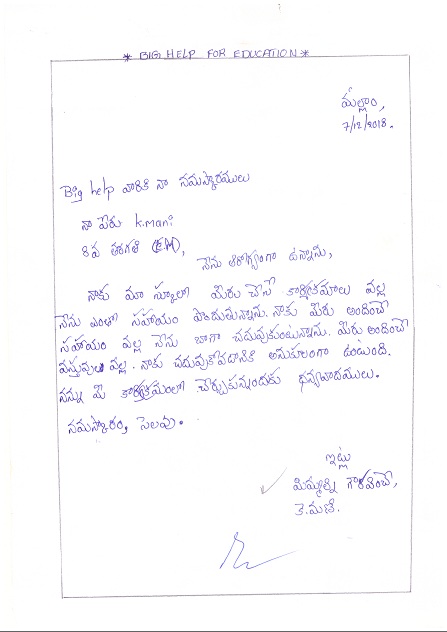 * BIG HELP FOR EDUCATION *
మల్లాం,
7/12/2018.
Big help వారికి నా నమస్కారములు
నా పేరు k.mani
8వ తరగతి (E.M), నేను ఆరోగ్యంగా ఉన్నాను,
నాకు మా స్కూలో మీరు చేసే కార్యక్రమాలు వల్ల
నేను ఎంతో సహాయం పొందుతున్నాను. నాకు మీరు అందించే
సహాయం వల్ల నేను బాగా చదువుకుంటున్నాను. మీరు అందించే
వస్తువులు వల్ల. నాకు చదువుకోవడానికి అనుకులంగా ఉంటుంది.
నన్ను మీ కార్యక్రమంలో చేర్చుకున్నందుకు ధన్యవాదములు.
నమస్కారం, సెలవు.
ఇట్లు
మిమ్మల్ని గౌరవించే,
కె.మణి.